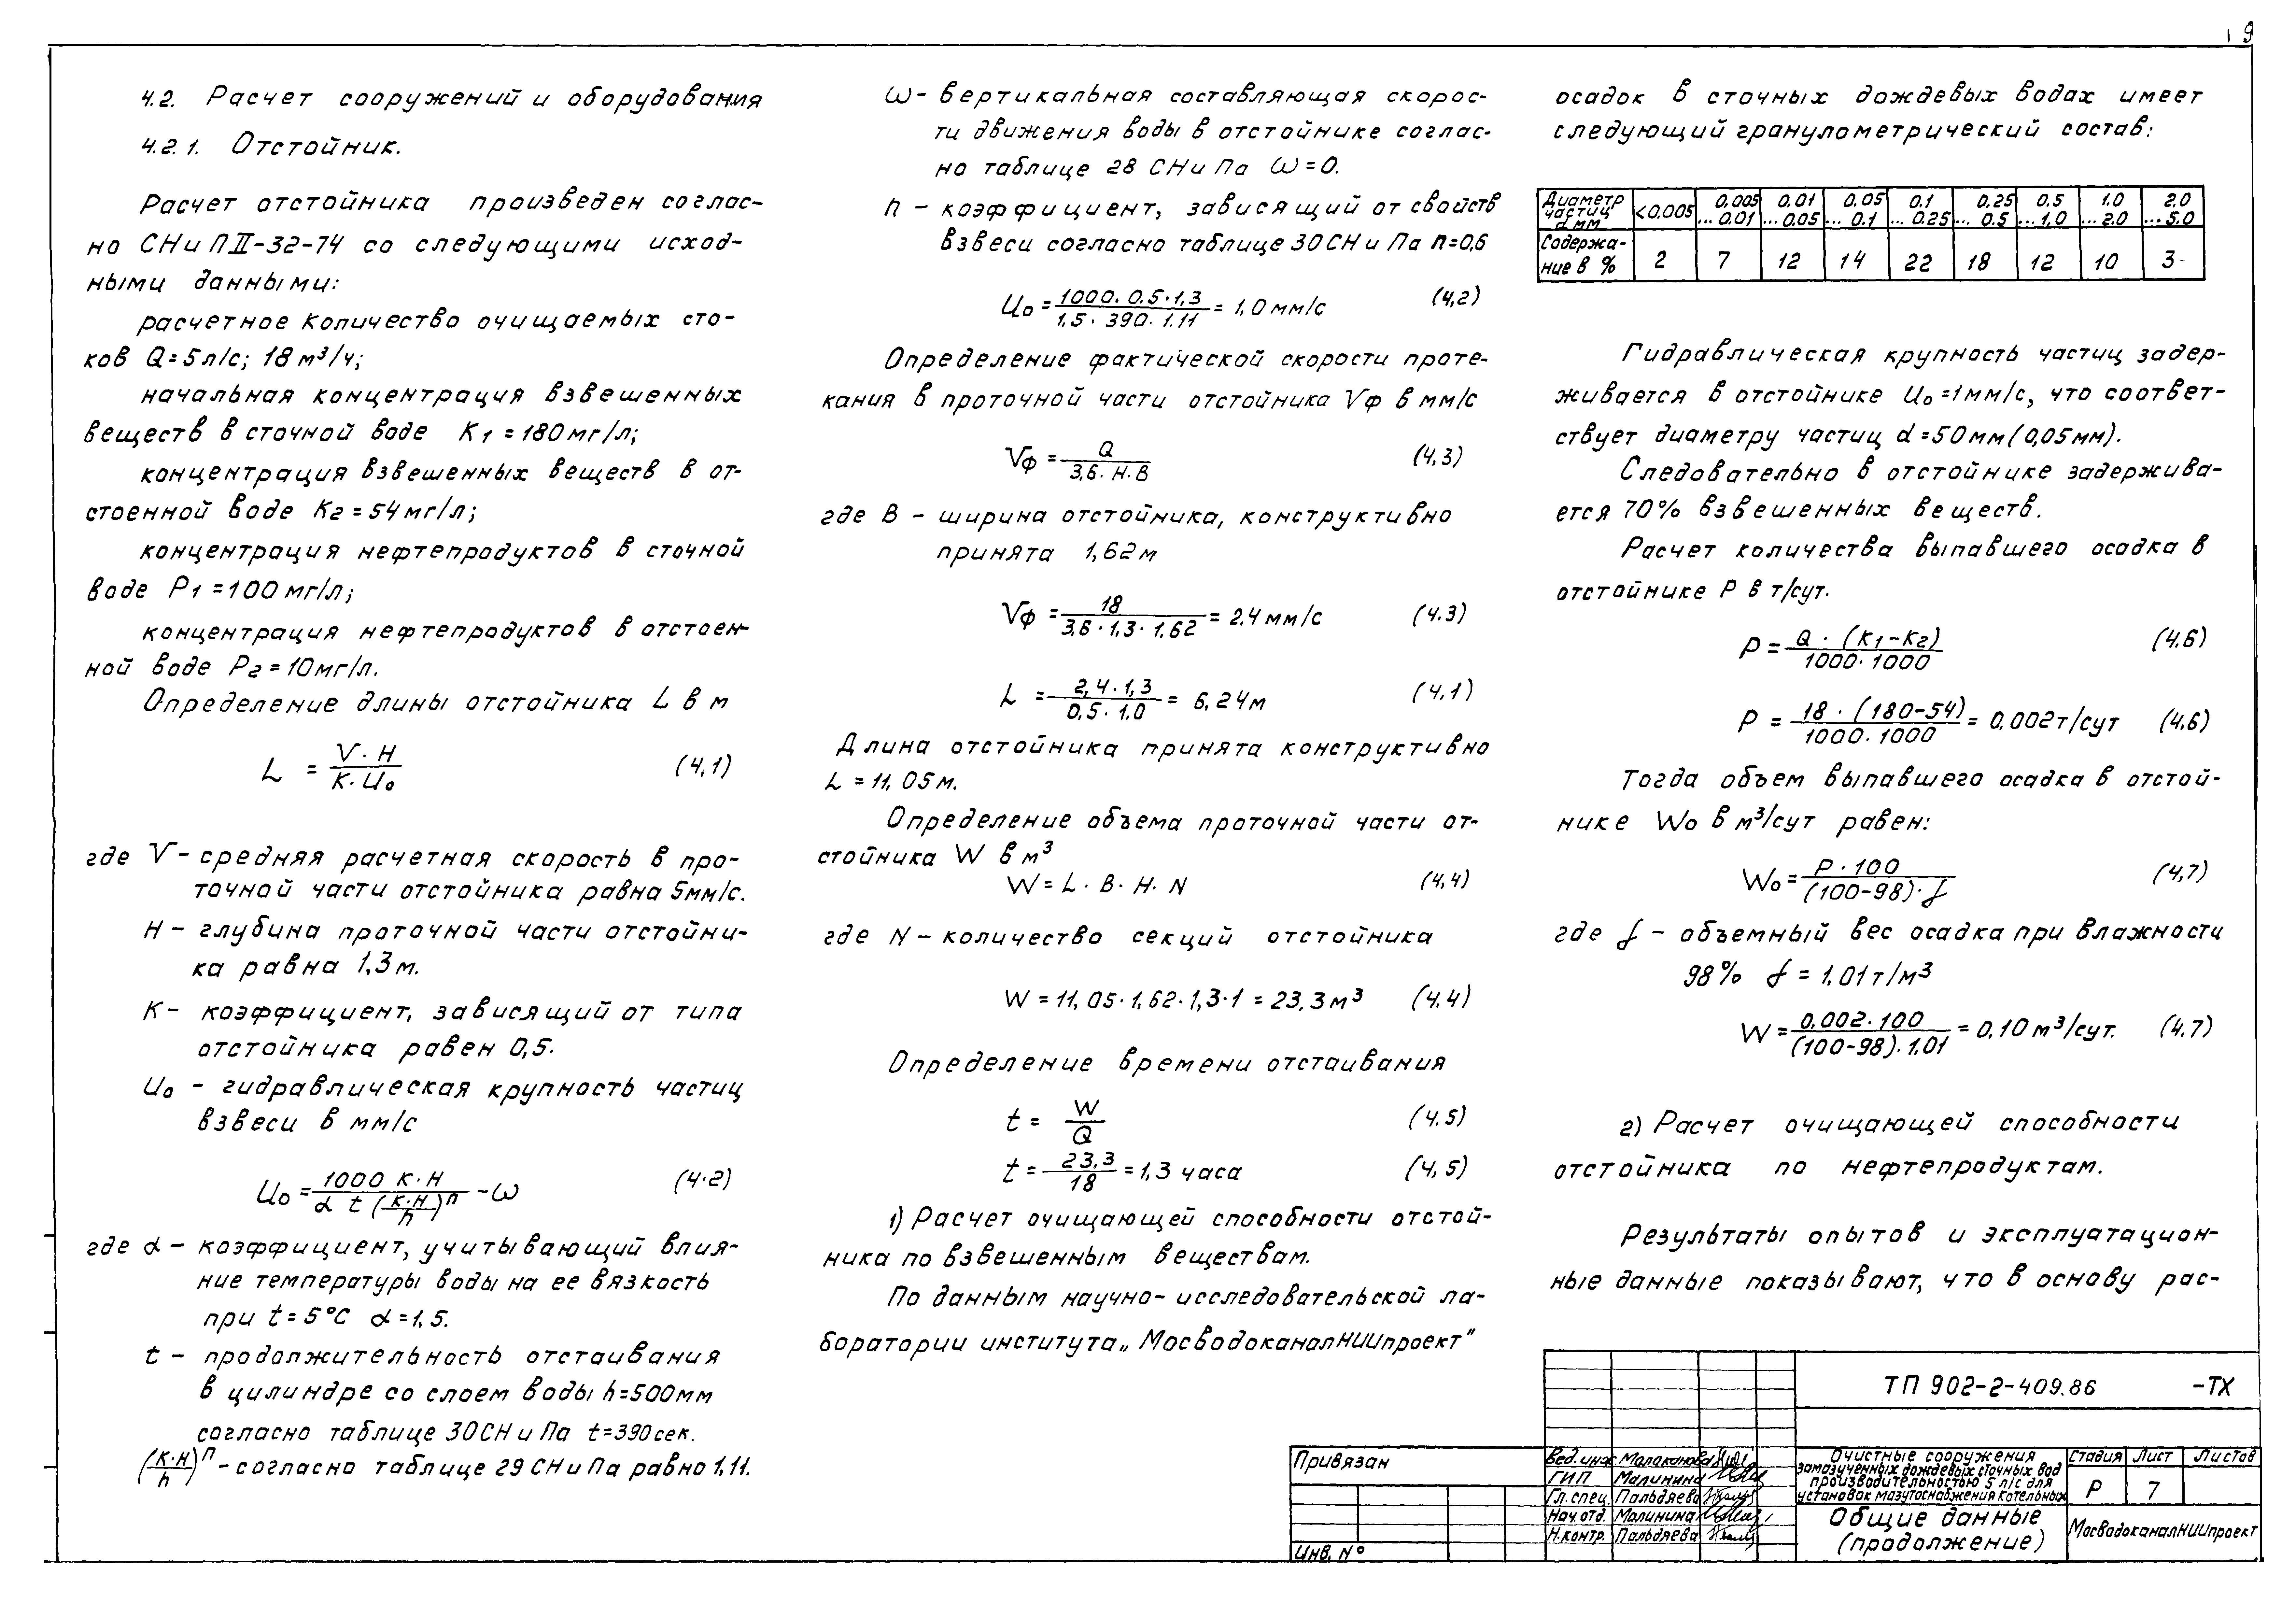 19
4.2. Расчет сооружений и оборудования
4.2.1. Отстойник.
Расчет отстойника произведен соглас-
но СНиПII-32-74 со следующими исход-
ными данными:
расчетное количество очищаемых сто-
ков Q=5л/с; 18м³/ч;
начальная концентрация взвешенных
веществ в сточной воде К1=180мг/л;
концентрация взвешенных веществ в от-
стоенной воде К2=54мг/л;
концентрация нефтепродуктов в сточной
воде Р1=100мг/л;
концентрация нефтепродуктов в отстоен-
ной воде Р2=10мг/л.
Определение длины отстойника L в м
L = V·H / K·Uo (4,1)
где V- средняя расчетная скорость в про-
точной части отстойника равна 5мм/с.
Н- глубина проточной части отстойни-
ка равна 1,3м.
К- коэффициент, зависящий от типа
отстойника равен 0,5.
Uo - гидравлическая крупность частиц
взвеси в мм/с
Uo = 1000 К·Н / α t (К·Н/h)ⁿ - ω (4.2)
где α- коэффициент, учитывающий влия-
ние температуры воды на ее вязкость
при t=5°С α=1,5.
t - продолжительность отстаивания
в цилиндре со слоем воды h=500мм
согласно таблице 30СНиПа t=390сек.
(К·Н/h)ⁿ - согласно таблице 29СНиПа равно 1,11.
ω- вертикальная составляющая скорос-
ти движения воды в отстойнике соглас-
но таблице 28 СНиПа ω=0.
n - коэффициент, зависящий от свойств
взвеси согласно таблице 30СНиПа n=0,6
Uo = 1000. 0.5·1,3 / 1,5· 390. 1.11 = 1,0мм/с (4,2)
Определение фактической скорости проте-
кания в проточной части отстойника Vф в мм/с
Vф = Q / 3,6· Н·В (4,3)
где В - ширина отстойника, конструктивно
принята 1,62м
Vф = 18 / 3,6·1,3·1,62 = 2.4мм/с (4.3)
L = 2,4·1,3 / 0,5·1,0 = 6,24м (4,1)
Длина отстойника принята конструктивно
L = 11,05м.
Определение объема проточной части от-
стойника W в м³
W = L· В· Н· N (4,4)
где N - количество секций отстойника
W = 11,05·1,62·1,3·1 = 23,3м³ (4.4)
Определение времени отстаивания
t = W / Q (4.5)
t = 23,3 / 18 = 1,3 часа (4,5)
1) Расчет очищающей способности отстой-
ника по взвешенным веществам.
По данным научно-исследовательской ла-
боратории института „МосводоканалНИИпроект"
осадок в сточных дождевых водах имеет
следующий гранулометрический состав:
Диаметр частиц d мм <0.005 0.005 ... 0.01 0.01 ... 0.05 0.05 ... 0.1 0.1 ... 0.25 0.25 ... 0.5 0.5 ... 1.0 1.0 ... 2.0 2.0 ... 5.0
Содержа-ние в % 2 7 12 14 22 18 12 10 3
Гидравлическая крупность частиц задер-
живается в отстойнике Uo=1мм/с, что соответ-
ствует диаметру частиц d=50мм(0,05мм).
Следовательно в отстойнике задержива-
ется 70% взвешенных веществ.
Расчет количества выпавшего осадка в
отстойнике Р в т/сут.
Р = Q · (К1-К2) / 1000·1000 (4.6)
Р = 18 · (180-54) / 1000·1000 = 0,002т/сут (4.6)
Тогда объем выпавшего осадка в отстой-
нике Wo в м³/сут равен:
Wo = Р·100 / (100-98)·f (4,7)
где f - объемный вес осадка при влажности
98% f = 1,01т/м³
W = 0,002·100 / (100-98)·1,01 = 0,10м³/сут. (4,7)
г) Расчет очищающей способности
отстойника по нефтепродуктам.
Результаты опытов и эксплуатацион-
ные данные показывают, что в основу рас-
ТП 902-2-409.86 -ТХ
Привязан
Инв. №
Вед.инж. Малаканова
ГИП Малинина
Гл.спец. Пальдяева
Нач.отд. Малинина
Н.контр. Пальдяева
Очистные сооружения
замазученных дождевых сточных вод
производительностью 5 л/с для
установок мазутоснабжения котельных
Стадия Лист Листов
Р 7
Общие данные
(продолжение)
МосводоканалНИИпроект